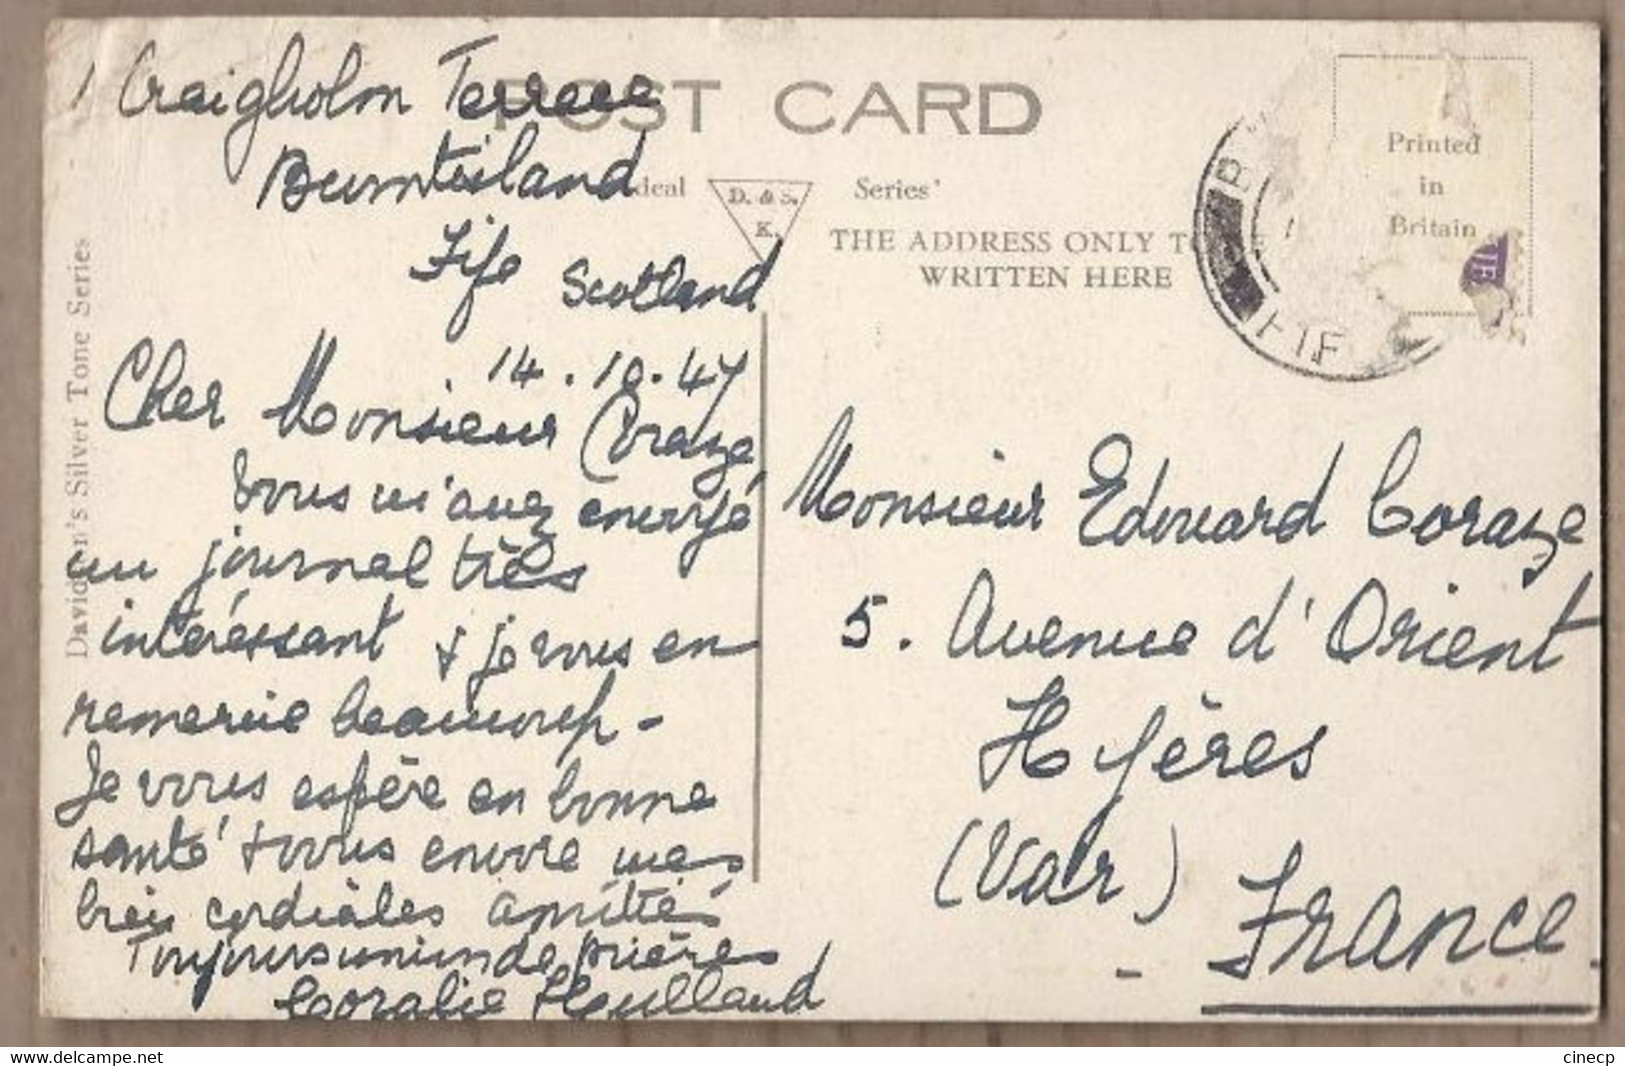 1 Craigholm Terrace
Burntisland
Fife Scotland
14.10.47
Cher Monsieur Coraze
Vous m'avez envoyé
un journal très
intéressant & je vous en
remercie beaucoup -
Je vous espère en bonne
santé & vous envoie mes
bien cordiales amitiés
Toujours union de prières
Coralie
POST CARD
Ideal
D. & S.
K.
Series'
THE ADDRESS ONLY TO BE
WRITTEN HERE
Davidson's Silver Tone Series
Printed
in
Britain
FIF
Monsieur Edouard Coraze
5. Avenue d'Orient
Hyères
(Var)
- France
www.delcampe.net
cinecp